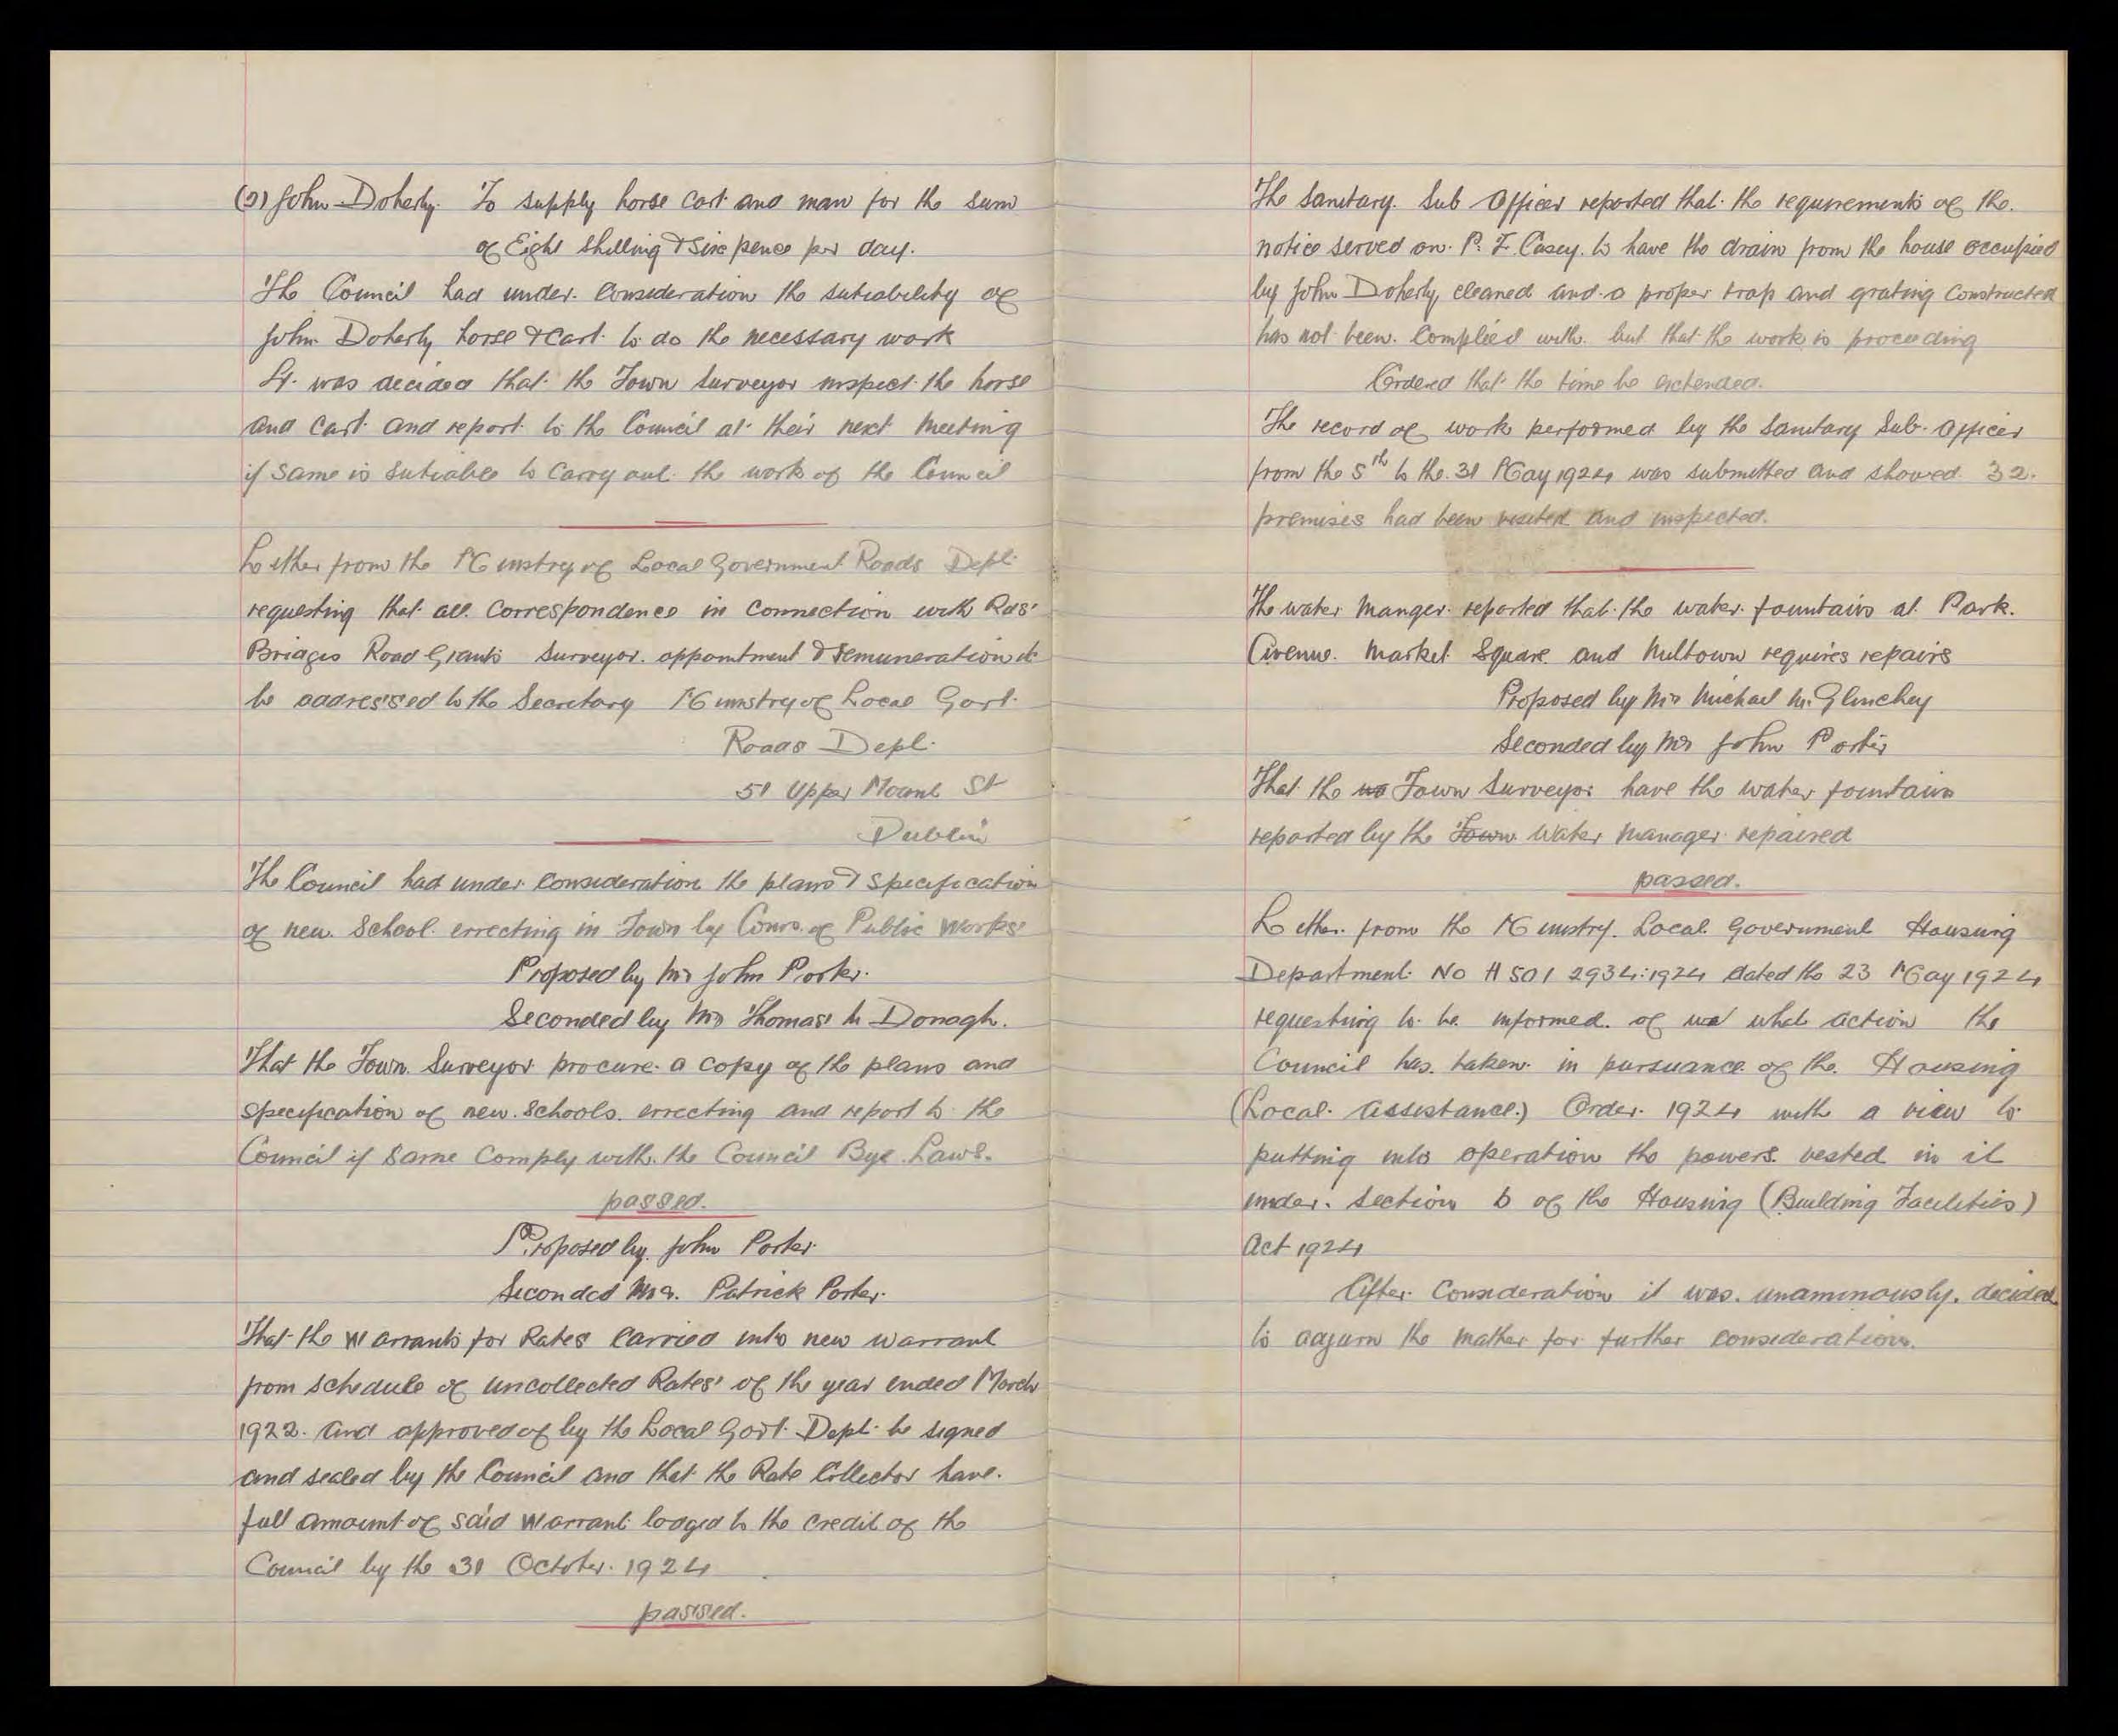 (2) John Doherty. To supply horse cart and man for the sum
of Eight Shilling & Six pence per day.
The Council had under consideration the sutiability of
John Doherty horse & cart to do the necessary work
It was decided that the Town Surveyor inspect the horse
and cart and report to the Council at their next meeting
if same is sutiable to carry out the work of the Council
Letter from the Ministry of Local Government Roads Dept
requesting that all correspondence in connection with Rds
Bridges Road Grants Surveyor appointment & remuneration etc
be addressed to the Secretary Ministry of Local Govt.
Roads Dept.
51 Upper Mount St
Dublin
The Council had under consideration the plans & specification
of new School errecting in Town by Coms. of Public Works
Proposed by Mr John Porter.
Seconded by Mr Thomas Mc Donagh.
That the Town Surveyor procure a copy of the plans and
specification of new Schools errecting and report to the
Council if same comply with the Council Bye Laws.
passed.
Proposed by John Porter
Seconded Mr. Patrick Porter.
That the Warrants for Rates carried into new warrant
from schedule of uncollected Rates of the year ended March
1922. and approved of by the Local Govt. Dept. be signed
and sealed by the Council and that the Rate Collector have
full amount of said Warrant lodged to the credit of the
Council by the 31 October 1924
passed.
The Sanitary Sub Officer reported that the requirements of the
notice served on P. F. Casey to have the drain from the house occupied
by John Doherty cleaned and a proper trap and grating constructed
has not been complied with but that the work is proceeding
Ordered that the time be extended.
The record of work performed by the Sanitary Sub. Officer
from the 5th to the 31 May 1924 was submitted and showed 32
premises had been visited and inspected.
The water manger reported that the water fountains at Park
Avenue Market Square and Milltown requires repairs
Proposed by Mr Michael McGlinchey
Seconded by Mr John Porter
That the wa Town Surveyor have the water fountains
reported by the Town Water Manager repaired
passed.
Letter from the Ministry Local Government Housing
Department No H 501 2934:1924 dated the 23 May 1924
requesting to be informed of wa what action the
Council has taken in pursuance of the Housing
(Local Assistance) Order 1924 with a view to
putting into operation the powers vested in it
under section 6 of the Housing (Building Facilities)
Act 1924
After Consideration it was unaminously decided
to adjurn the matter for further consideration.